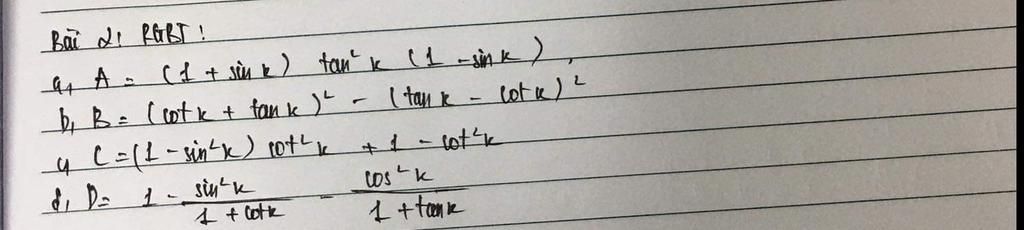 Bài 2: RGBT:
a, A = (1 + sin x) tan² x (1 - sin x),
b, B = (cot x + tan x)² - (tan x - cot x)²
c, C = (1 - sin² x) cot² x + 1 - cot² x
d, D = 1 - sin² x / (1 + cot x) - cos² x / (1 + tan x)